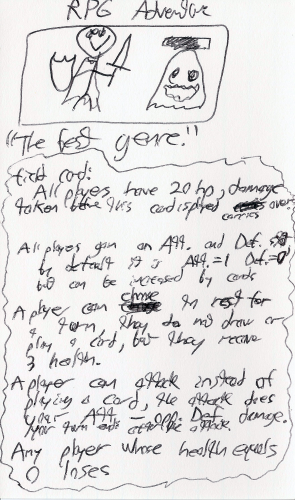 RPG Adventure
"The best genre."
field card:
All players have 20 hp, damage
taken before this card is played carries over.
All players gain an Att. and Def. stat
by default it is Att.=1 Def.=0
but can be increased by cards
A player can choose to rest for
a turn, they do not draw or
play a card, but they recover
3 health.
A player can attack instead of
playing a card, the attack does
your Att. - opp. Def. damage.
your turn ends after the attack.
Any player whose health equals
0 loses